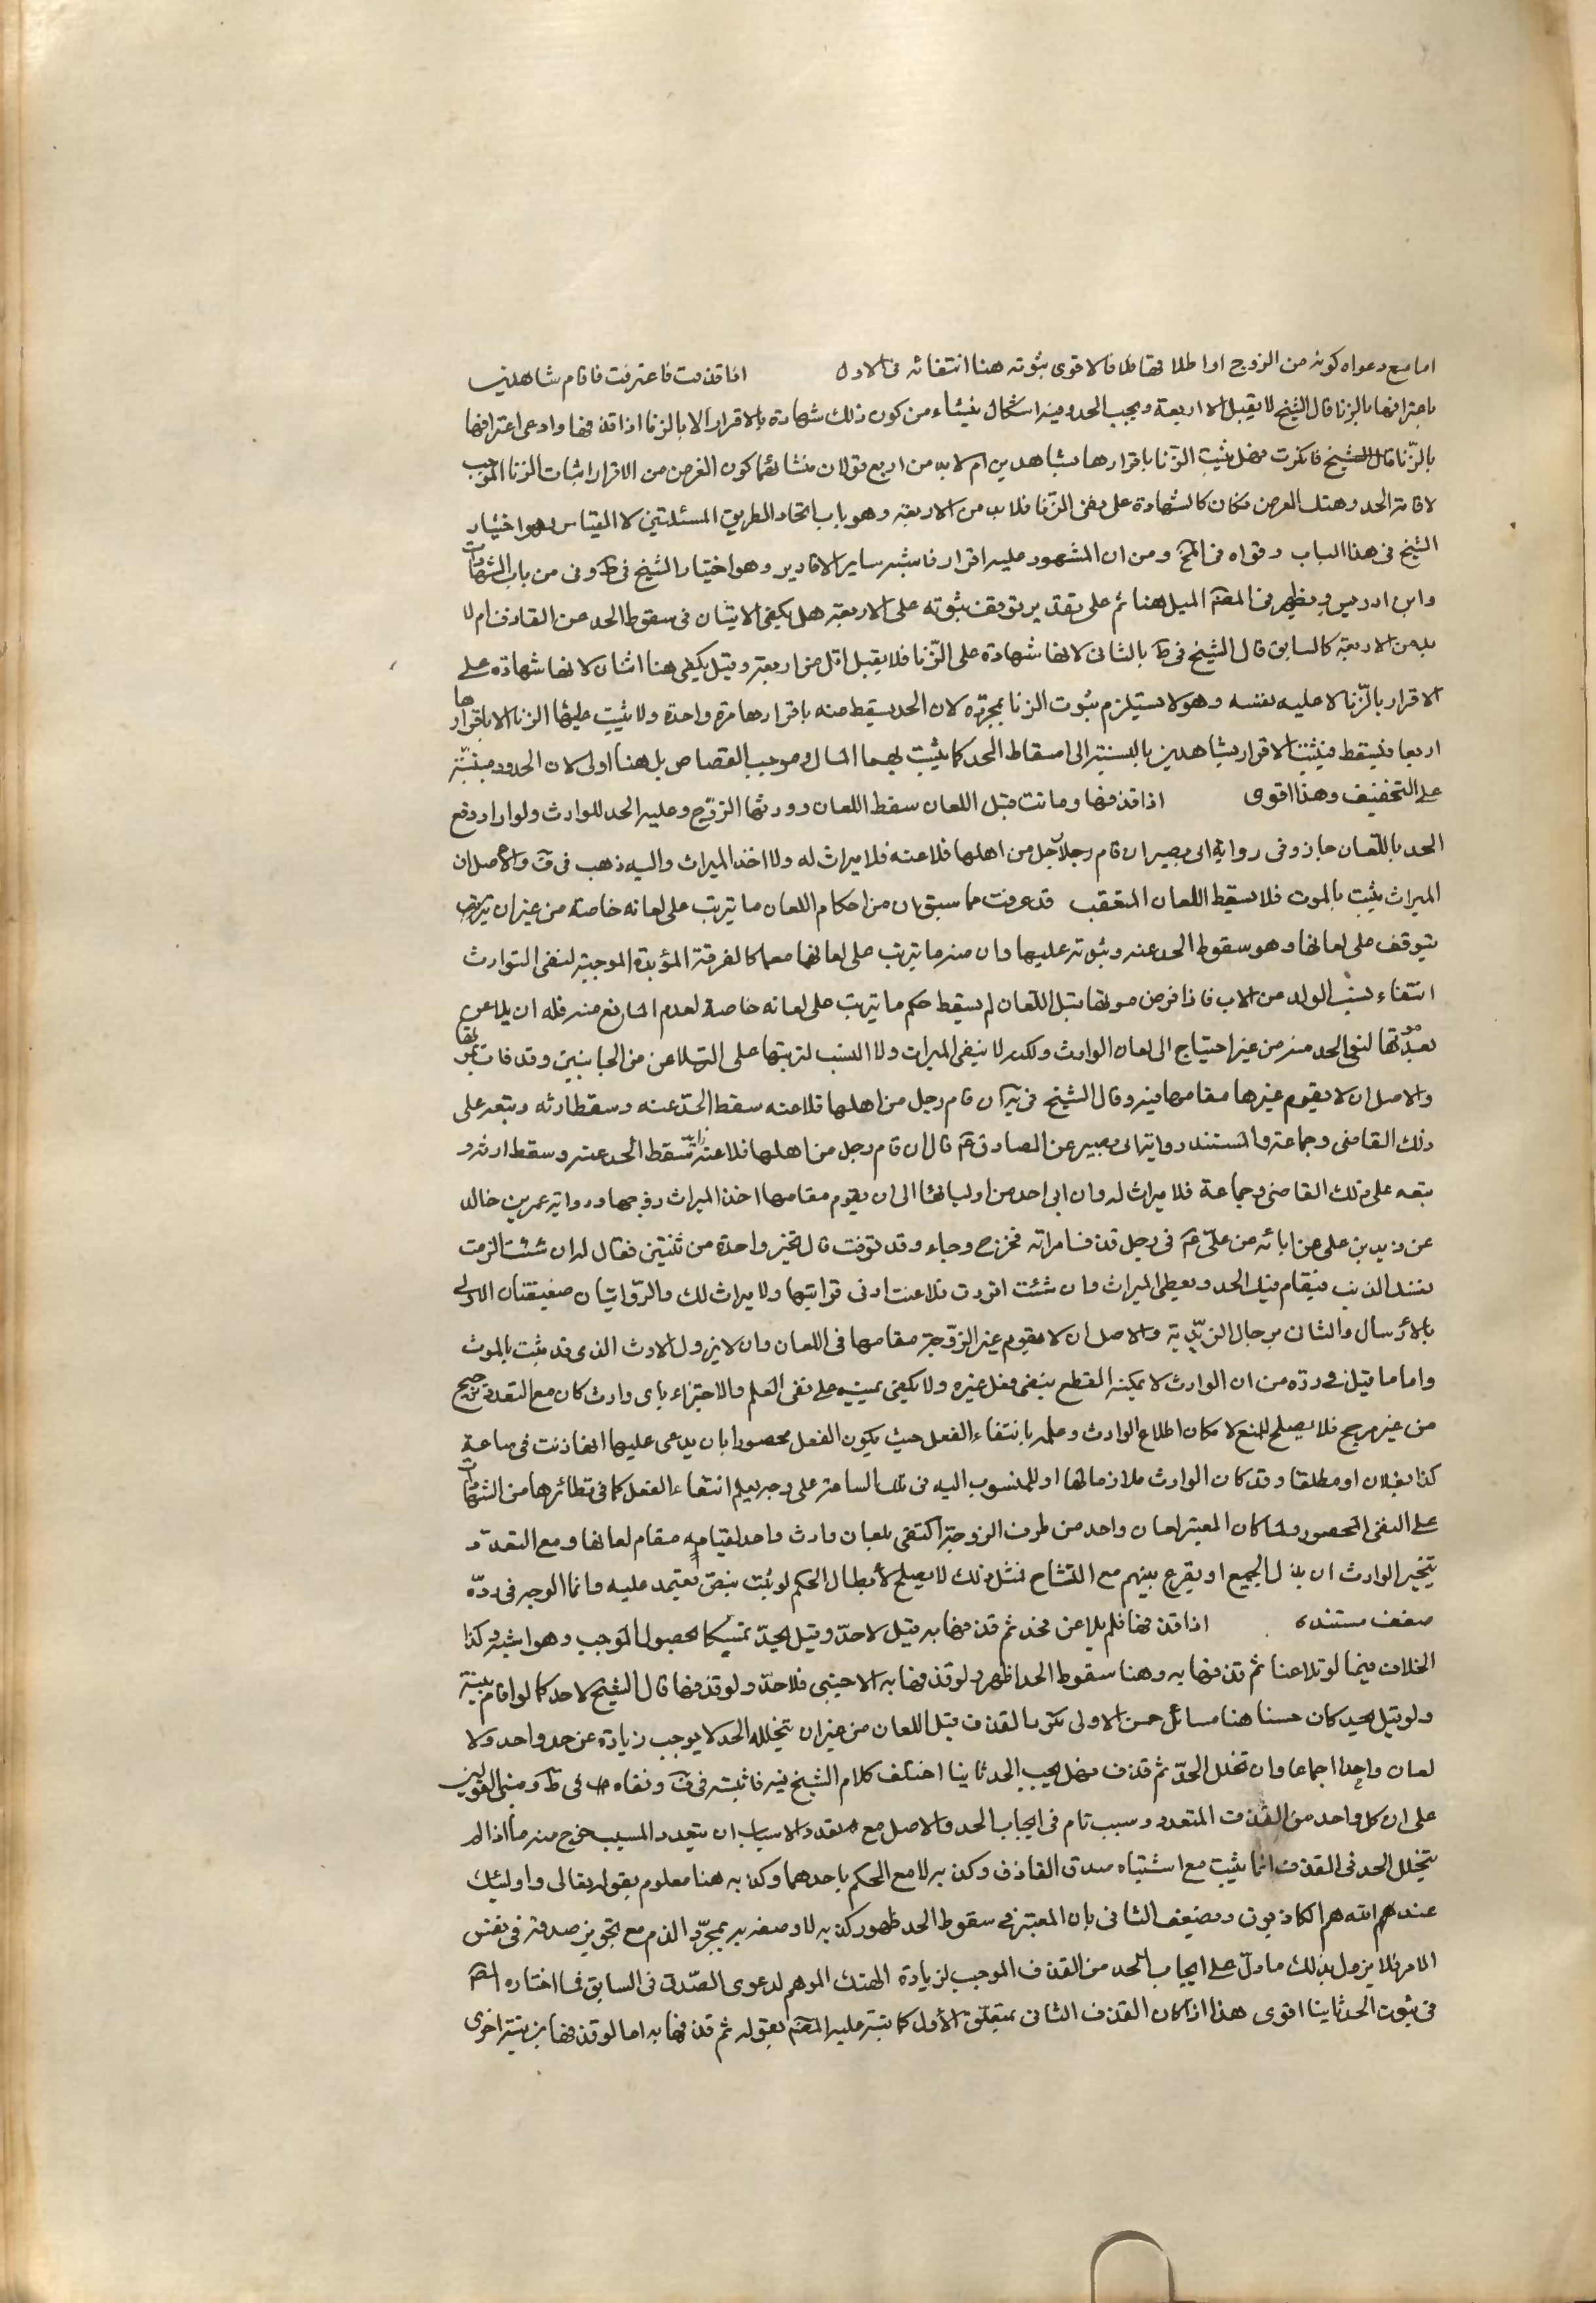 اما مع دعواه كونه من الزوج او اطلاقها فالاقوى ثبوته هنا انتفائه فى الاول اذا قذفت فاعترفت فاقام شاهدين
باعترافها بالزنا قال الشيخ لا يقبل الا اربعة ويجب الحد وفيه اشكال ينشاء من كون ذلك شهادة بالاقرار لا بالزنا اذا قذفها وادعى اعترافها
بالزّنا قال الشيخ فانكرت فهل يثبت الزنا باقرارها بشاهدين ام لا بد من اربع قولان منشائهما كون الغرض من الاقرار اثبات الزنا الموجب
لاقامة الحد وهتك العرض فكان كالشهادة على نفس الزّنا فلا بد من الاربعة وهو باب اتحاد الطريق المسئلتين لا القياس وهو اختيار
الشيخ فى هذا الباب وقواه فى المخ ومن ان المشهود عليه اقرار فاشبه ساير الاقارير وهو اختيار الشيخ فى ط وفى من باب الشهادات
وابن ادريس ويظهر من المصّ الميل هنا ثم على تقدير توقف ثبوته على الاربعة هل يكفى الاثنان فى سقوط الحد عن القاذف ام لا
بد من الاربعة كالسابق قال الشيخ فى ط بالثانى لانها شهادة على الزّنا فلا يقبل اقل من اربعة وقيل يكفى هنا اثنان لانها شهادة على
الاقرار بالزّنا لا عليه نفسه وهو لا يستلزم ثبوت الزنا بمجرّده لان الحد يسقط عنه باقرارها مرة واحدة ولا يثبت عليها الزنا الا باقرارها
اربعا فيسقط فيثبت الاقرار بشاهدين بالنسبة الى اسقاط الحد كما يثبت بهما المال وموجب القصاص بل هنا اولى لان الحدود مبنيّة
على التخفيف وهذا اقوى اذا قذفها وماتت قبل اللعان سقط اللعان وورثها الزوج وعليه الحد للوارث ولو اراد دفع
الحد باللّعان جاز وفى رواية ابى بصير ان قام رجل من اهلها فلاعنه فلا ميراث له والا اخذ الميراث واليه ذهب فى ف والاصل ان
الميراث يثبت بالموت فلا يسقط اللعان المتعقب قد عرفت مما سبق ان من احكام اللعان ما يترتب على لعانه خاصة من غير ان
يتوقف على لعانها وهو سقوط الحد عنه وثبوته عليها وان منه ما يترتب على لعانهما معا كالفرقة المؤبدة الموجبة لنفى التوارث
انتفاء نسب الولد من الاب فاذا فرض موتها قبل اللّعان لم يسقط حكم ما يترتب على لعانه خاصة لعدم المانع منه فله ان يلاعن
بعد موتها لنفى الحد منه من غير احتياج الى لعان الوارث ولكن لا ينفى الميراث ولا النسب لترتبها على التلاعن من الجانبين وقد فات بموتها
والاصل ان لا يقوم غيرها مقامها فيه وقال الشيخ فى يه ان قام رجل من اهلها فلاعنه سقط الحدّ عنه وسقط ارثه وتبعه على
ذلك القاضى وجماعة والمستند رواية ابى بصير عن الصادق ع قال ان قام رجل من اهلها فلاعنه سقط الحد عنه وسقط ارثه و
تبعه على ذلك القاضى وجماعة فلا ميراث له وان ابى احد من اوليائها الى ان يقوم مقامها اخذ الميراث زوجها ورواية عمر بن خالد
عن زيد بن على عن ابائه عن علىّ ع فى رجل قذف امراته فخرج وجاء وقد توفت قال تخير واحدة من ثنتين فقال له ان شئت الزمت
نفسك الذنب فيقام فيك الحد وتعطى الميراث وان شئت اقررت فلاعنت ادنى قرابتها ولا ميراث لك والرّوايتان ضعيفتان الاولى
بالارسال والثانى برجال الزيّدية والاصل ان لا يقوم غير الزوّجة مقامها فى اللعان وان لا يزول الارث الذى قد ثبت بالموت
واما ما قيل فى ردّه من ان الوارث لا يمكنه القطع بنفى فعل غيره ولا يكفى يمينه على نفى العلم والاجتزاء باى وارث كان مع التعدد ترجيح
من غير مرجح فلا يصلح للمنع لامكان اطلاع الوارث وعلمه بانتفاء الفعل حيث يكون الفعل محصورا بان يدعى عليها انها زنت فى ساعة
كذا بفلان او مطلقا وقد كان الوارث ملازما لها او للمنسوب اليه فى تلك الساعة على وجه يعلم انتفاء الفعل كما فى نظائرها من الشهادات
على النفى المحصور ولما كان المعتبر لعان واحد من طرف الزوجة اكتفى بلعان وارث واحد لقيامه مقام لعانها ومع التعدّد
يتخير الوارث ان بذل الجميع او يقرع بينهم مع التشاح فمثل ذلك لا يصلح لأبطال الحكم لو ثبت بنصّ يعتمد عليه وانما الوجه فى ردّه
ضعف مستنده اذا قذفها فلم يلاعن فحد ثم قذفها به قيل لا حدّ وقيل يحدّ تمسكا بحصول الموجب وهو اشبه وكذا
الخلاف فيما لو تلاعنا ثم قذفها به وهنا سقوط الحد اظهر ولو قذفها به الاجنبى فلا حدّ ولو قذفها قال الشيخ لا حد كما لو اقام بينة
ولو قيل يحد كان حسنا هنا مسائل حسن الاولى تكرر القذف قبل اللعان من غير ان يتخلله الحد لا يوجب زيادة عن حد واحد ولا
لعان واحدا اجماعا وان تخلل الحدّ ثم قذف فهل يجب الحد ثانيا اختلف كلام الشيخ فيه فاثبته فى ف ونفاه فى ط ومبنى القولين
على ان كل واحد من القذف المتعدد وسبب تام فى ايجاب الحد والاصل مع تعدد الاسباب ان يتعدد المسبب خرج منه ما اذا لم
يتخلل الحد فى القذف انما يثبت مع اشتباه صدق القاذف وكذبه لا مع الحكم باحدهما وكذبه هنا معلوم بقوله تعالى واولئك
عند الله هم الكاذبون ويضعف الثانى بان المعتبر فى سقوط الحد ظهور كذبه لا وصفه به بمجرّد الذم مع تجويز صدقه فى نفس
الامر فلا يزول بذلك ما دلّ على ايجاب الحد من القذف الموجب لزيادة الهتك الموهم لدعوى الصّدق فى السابق فما اختاره المصّ
فى ثبوت الحد ثانيا اقوى هذا اذا كان القذف الثانى بمتعلّق الأول كما نبّه عليه المصّ بقوله ثم قذفها به اما لو قذفها بزنية اخرى